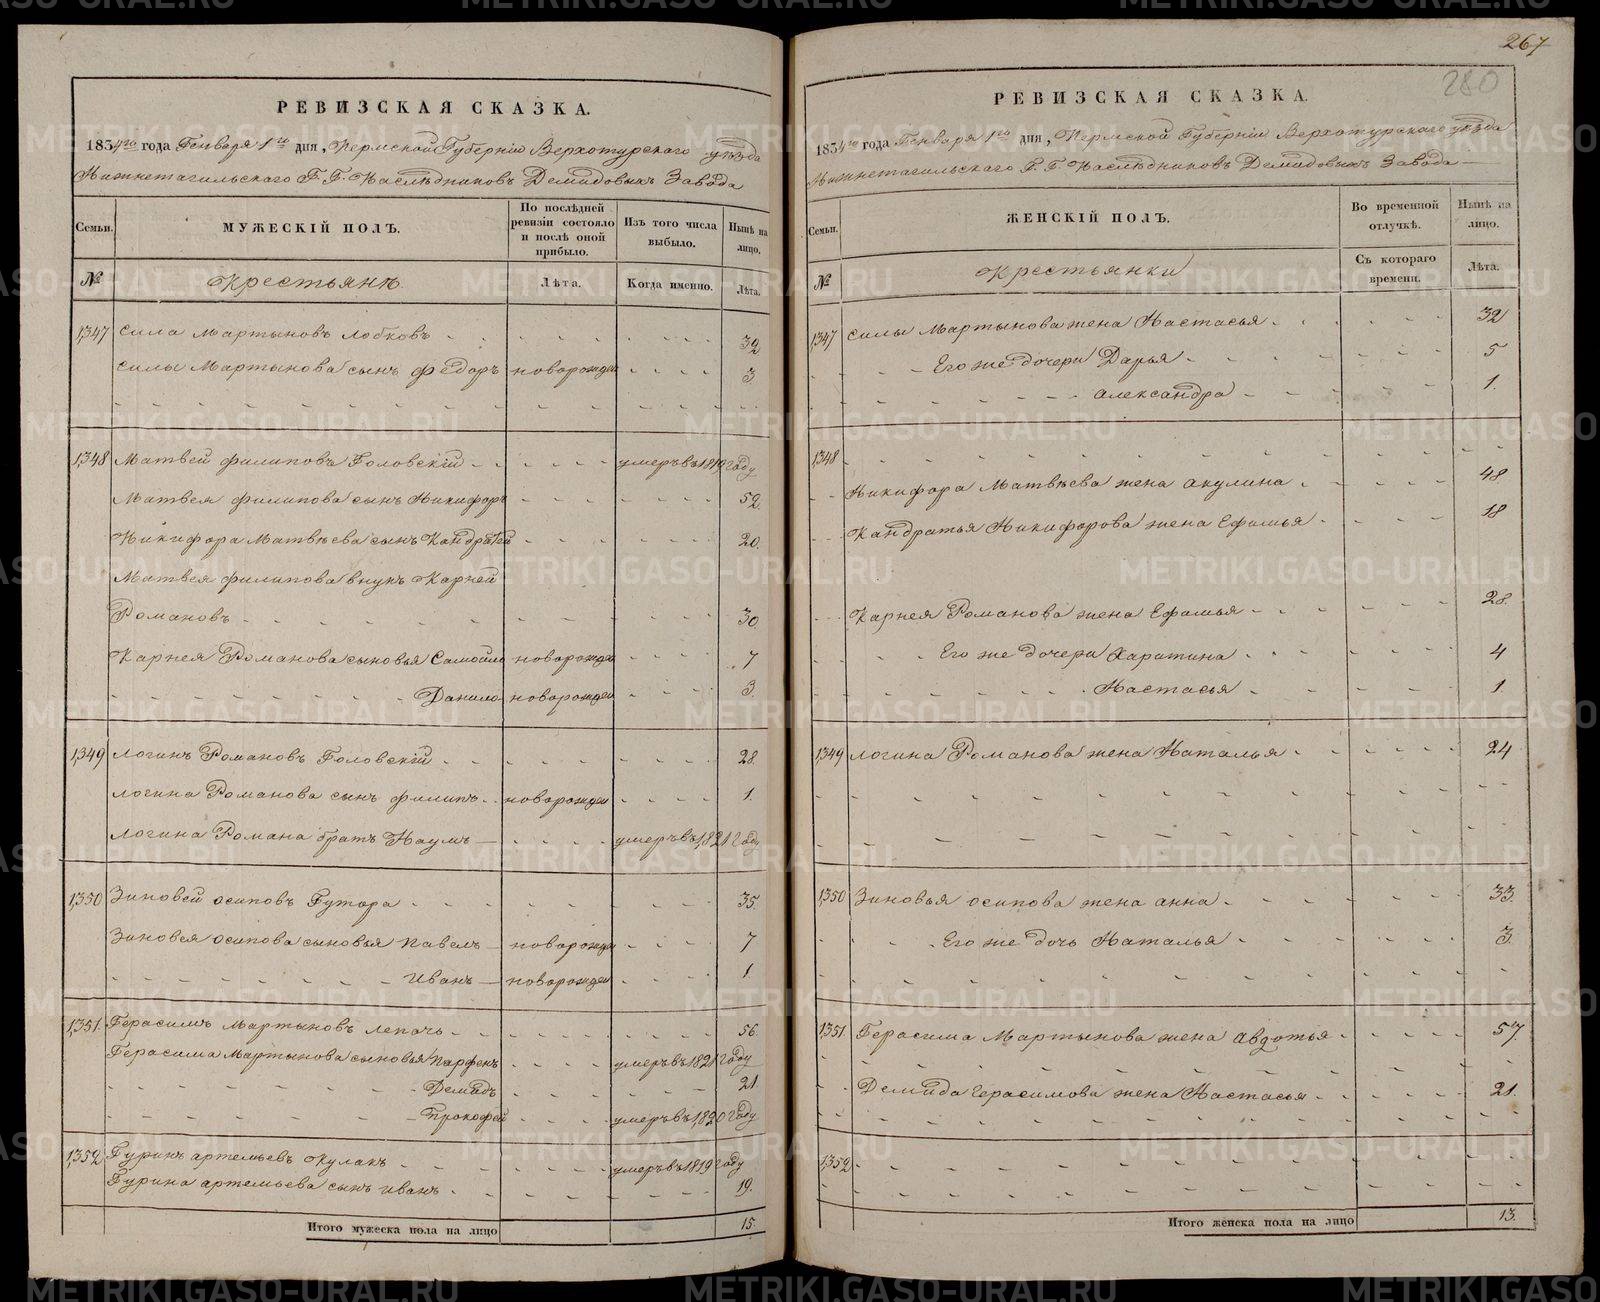 РЕВИЗСКАЯ СКАЗКА.
1834го года Генваря 1го дня, Пермской Губерніи Верхотурскаго уѣзда
Нижнетагильскаго Г.Г. Наслѣдниковъ Демидовыхъ Завода
Семьи. МУЖЕСКІЙ ПОЛЪ. По послѣдней ревизіи состояло и послѣ оной прибыло. Изъ того числа выбыло. Нынѣ на лицо.
№ Крестьянъ. Лѣта. Когда именно. Лѣта.
1347 Сила Мартыновъ Лобковъ 32
Силы Мартынова сынъ Федоръ новорожден 3
1348 Матвей Филиповъ Головскій умеръ въ 1819 году
Матвея Филипова сынъ Никифоръ 52
Никифора Матвѣева сынъ Кандратей 20.
Матвея Филипова внукъ Карней
Романовъ 30
Карнея Романова сыновья Самойло новорожден 7
Данило новорожден 3.
1349 Логинъ Романовъ Головскій 28.
Логина Романова сынъ Филипъ новорожден 1.
Логина Романа братъ Наумъ умеръ въ 1821 году
1350 Зиновей Осиповъ Гутора 35.
Зиновея Осипова сыновья Павелъ новорожден 7
Иванъ новорожден 1
1351. Герасимъ Мартыновъ Лепачь 56.
Герасима Мартынова сыновья Парфенъ умеръ въ 1821 году
Демидъ 21.
Прокофей умеръ въ 1820 году
1352 Гуринъ Артемьевъ Кулакъ умеръ въ 1819 году
Гурина Артемьева сынъ Иванъ 19.
Итого мужеска пола на лицо 15.
267
280
РЕВИЗСКАЯ СКАЗКА.
1834го года Генваря 1го дня, Пермской Губерніи Верхотурскаго уѣзда
Нижнетагильскаго Г.Г. Наслѣдниковъ Демидовыхъ Завода
Семьи. ЖЕНСКІЙ ПОЛЪ. Во временной отлучкѣ. Нынѣ на лицо.
№ Крестьянки Съ котораго времени. Лѣта.
1347 Силы Мартынова жена Настасья 32
Его же дочери Дарья 5
Александра 1.
1348
Никифора Матвѣева жена Акулина 48
Кандратья Никифорова жена Ефимья 18
Карнея Романова жена Ефимья 28.
Его же дочери Харитина 4
Настасья 1.
1349 Логина Романова жена Наталья 24
1350 Зиновья Осипова жена Анна 33.
Его же дочь Наталья 3.
1351 Герасима Мартынова жена Авдотья 57.
Демида Герасимова жена Настасья 21.
1352
Итого женска пола на лицо 13.
METRIKI.GASO-URAL.RU